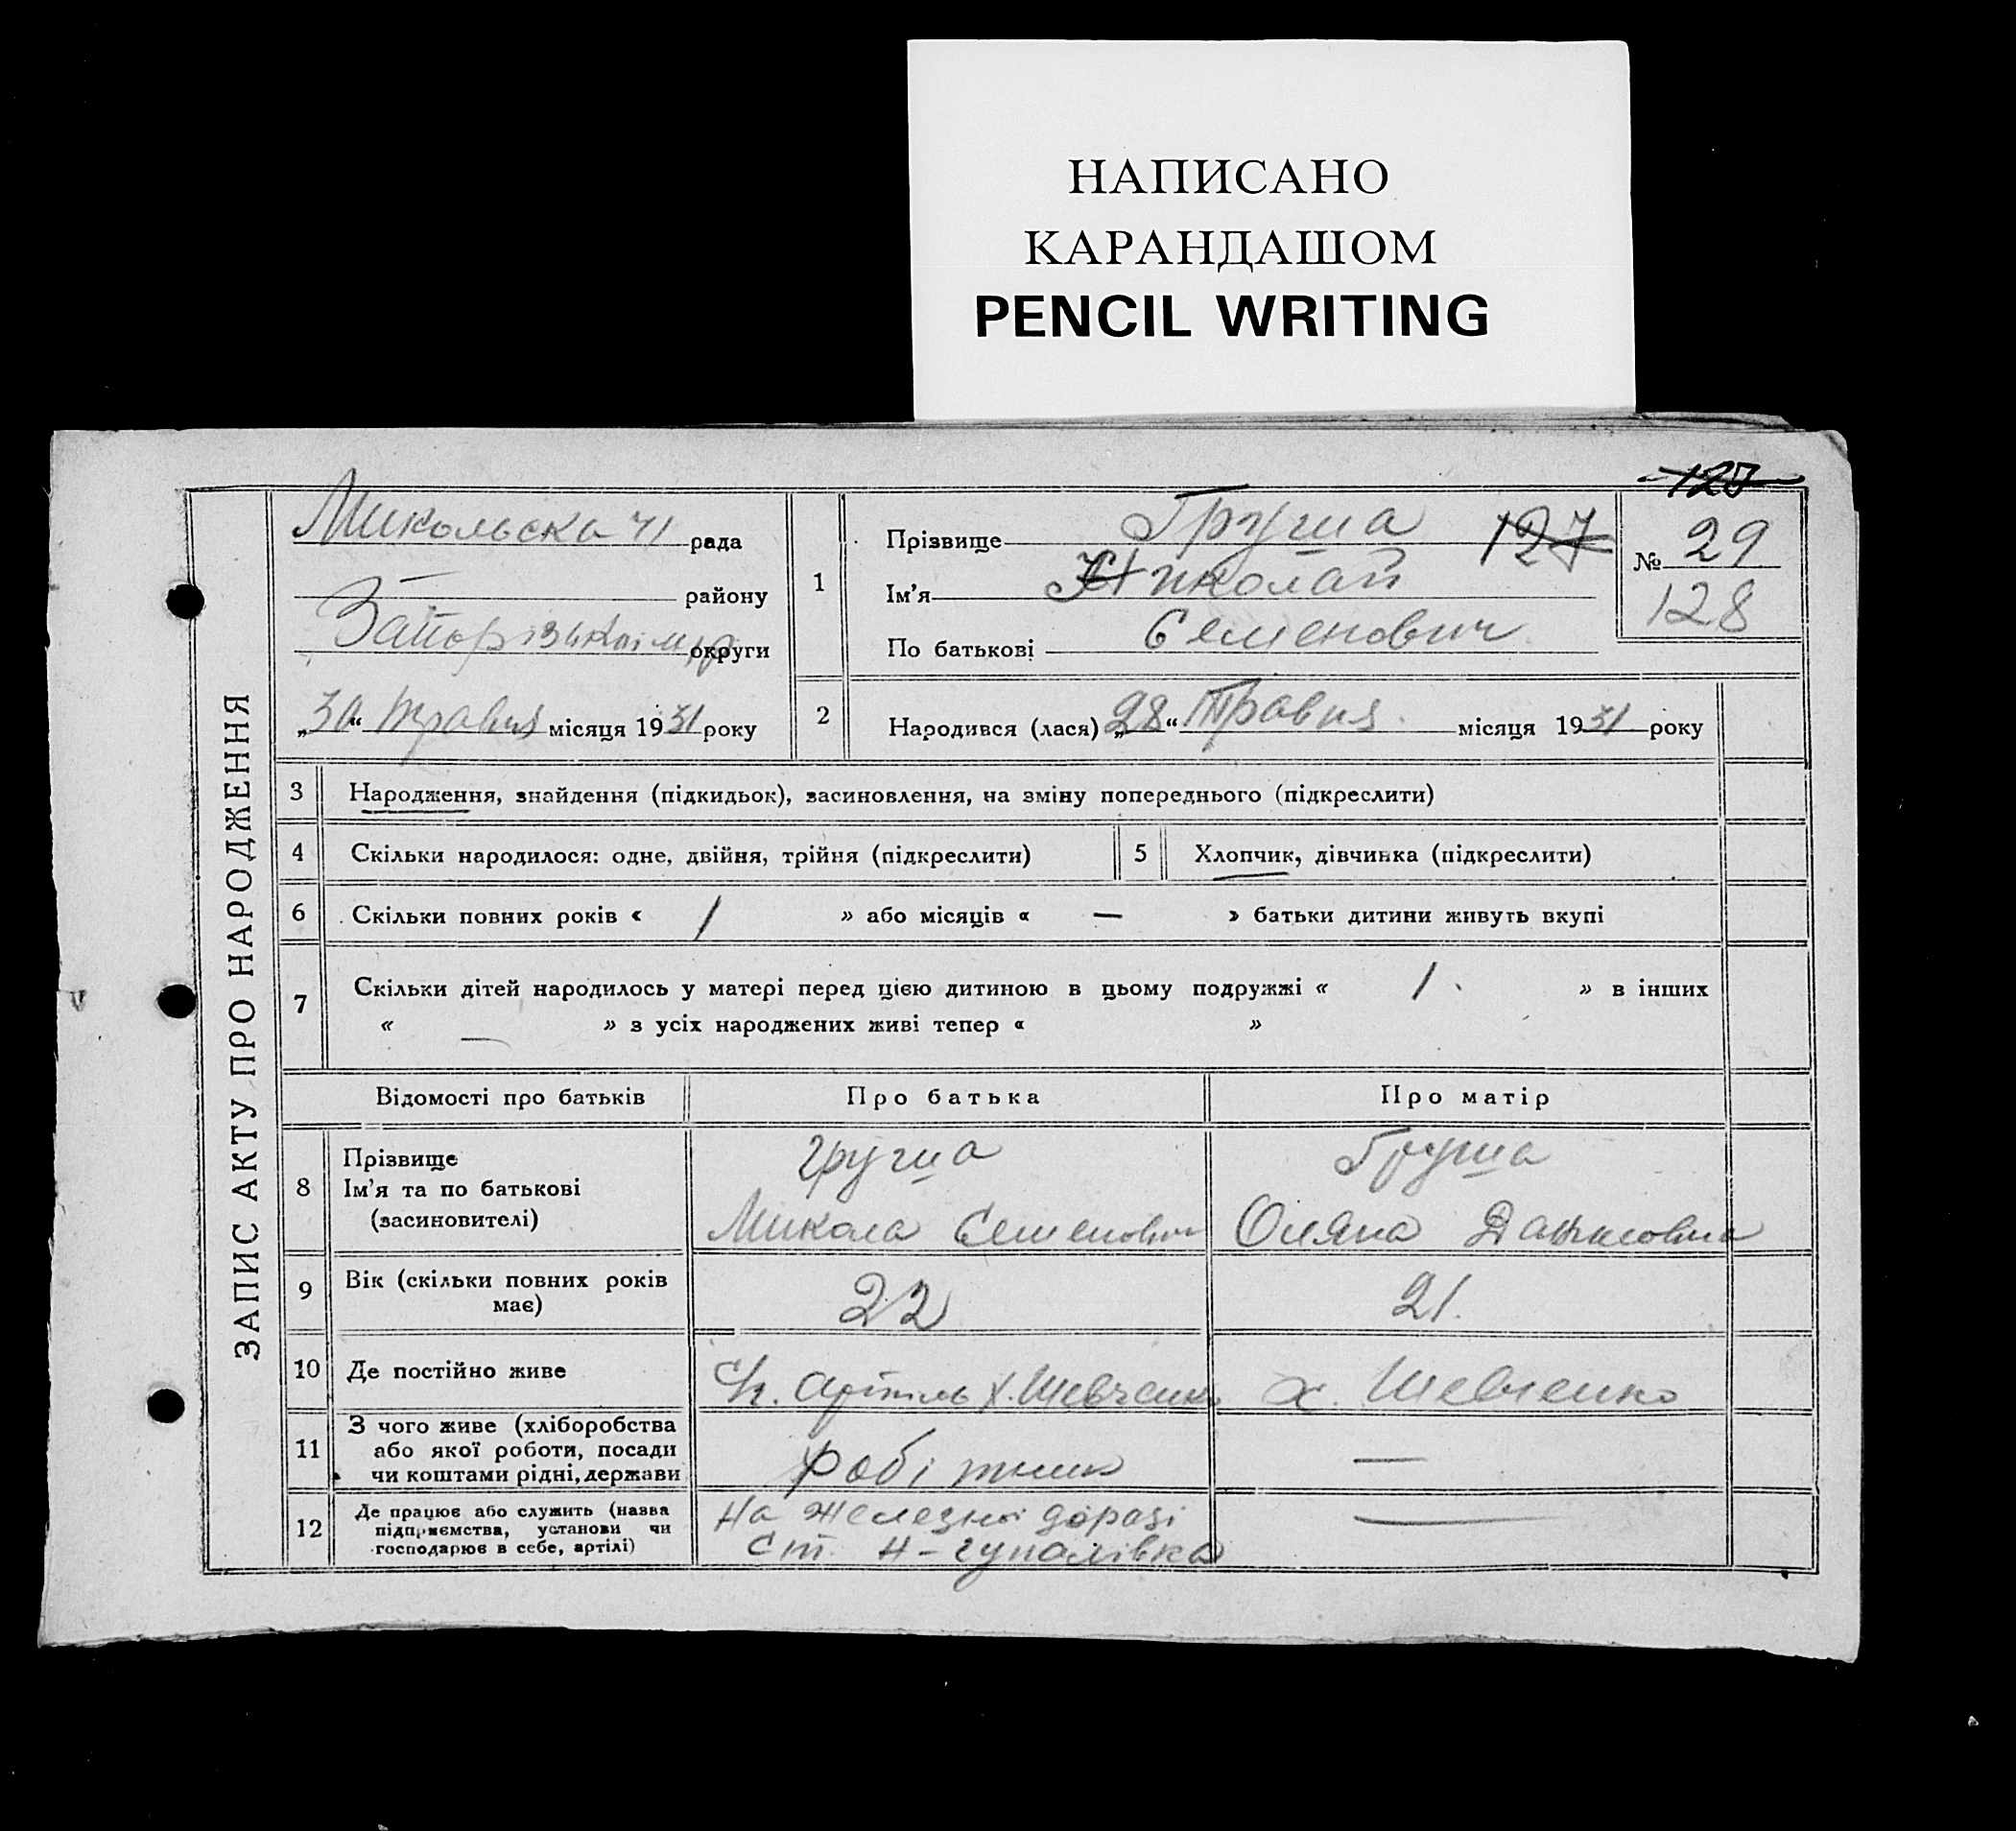 НАПИСАНО
КАРАНДАШОМ
PENCIL WRITING
ЗАПИС АКТУ ПРО НАРОДЖЕННЯ
Микольска рада
— району
округи
„30“ травня місяця 1931 року
1
Прізвище Груша 127
Ім'я Николай
По батькові Семенович
№ 29
128
2 Народився (лася) „28“ Травня місяця 1931 року
3 Народження, знайдення (підкидьок), засиновлення, на зміну попереднього (підкреслити)
4 Скільки народилося: одне, двійня, трійня (підкреслити) 5 Хлопчик, дівчинка (підкреслити)
6 Скільки повних років « 1 » або місяців « — » батьки дитини живуть вкупі
7 Скільки дітей народилось у матері перед цією дитиною в цьому подружжі « 1. » в інших
« — » з усіх народжених живі тепер « »
Відомості про батьків Про батька Про матір
8 Прізвище Груша Груша
Ім'я та по батькові
(засиновителі) Микола Семенович Оляна
9 Вік (скільки повних років має) 22 21.
10 Де постійно живе Артіль х. Шевченко х. Шевченко
11 З чого живе (хліборобства
або якої роботи, посади
чи коштами рідні, держави робітник —
12 Де працює або служить (назва
підприємства, установи чи
господарює в себе, артілі) На железні дорозі —
Ст. Н-Гупалівка